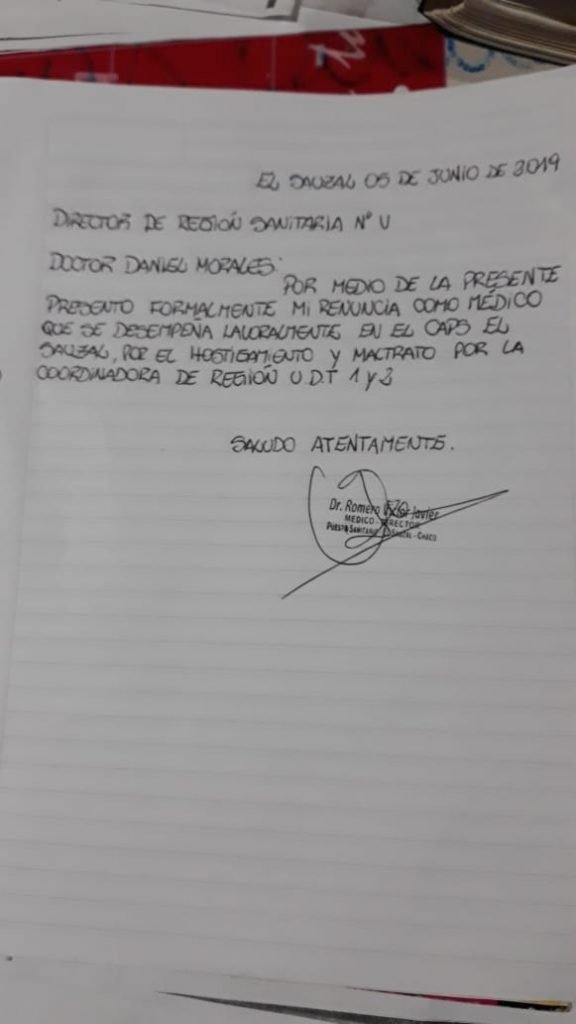 EL SAUZAL 05 DE JUNIO DE 2019
DIRECTOR DE REGIÓN SANITARIA N° V
DOCTOR DANIEL MORALES:
POR MEDIO DE LA PRESENTE
PRESENTO FORMALMENTE MI RENUNCIA COMO MÉDICO
QUE SE DESEMPEÑA LAVORALMENTE EN EL CAPS EL
SAUZAL, POR EL HOSTIGAMIENTO Y MALTRATO POR LA
COORDINADORA DE REGIÓN U.D.T 1 y 2
SALUDO ATENTAMENTE.
Dr. Romero Javier
MEDICO - DIRECTOR
PUESTO SANITARIO - CHACO